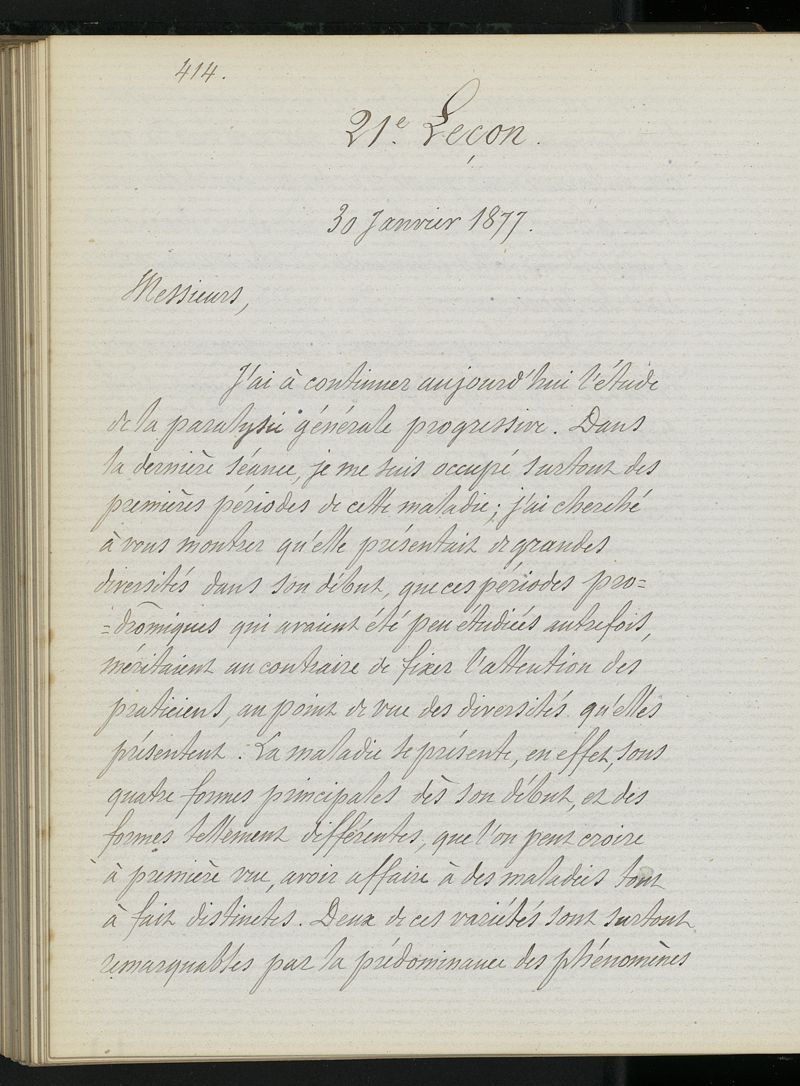 414.
21e. Leçon.
30 Janvier 1877.
Messieurs,
J'ai à continuer aujourd'hui l'étude
de la paralysie générale progressive. Dans
la dernière séance, je me suis occupé surtout des
premières périodes de cette maladie; j'ai cherché
à vous montrer qu'elle présentait de grandes
diversités dans son début, que ces périodes pro=
=drômiques qui avaient été peu étudiées autrefois,
méritaient au contraire de fixer l'attention des
praticiens, au point de vue des diversités qu'elles
présentent. La maladie se présente, en effet, sous
quatre formes principales dès son début, et des
formes tellement différentes, que l'on peut croire
à première vue, avoir affaire à des maladies tout
à fait distinctes. Deux de ces variétés sont surtout
remarquables par la prédominance des phénomènes